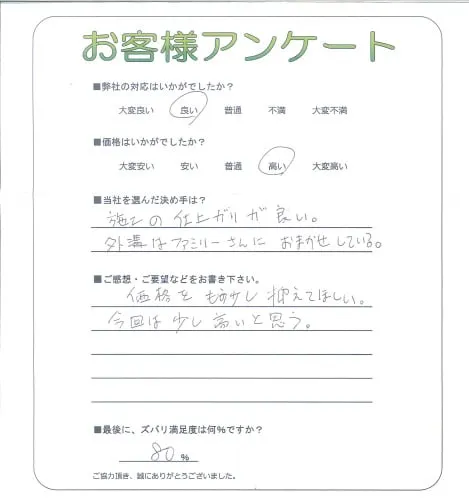 お客様アンケート
■弊社の対応はいかがでしたか？
大変良い 良い 普通 不満 大変不満
■価格はいかがでしたか？
大変安い 安い 普通 高い 大変高い
■当社を選んだ決め手は？
施工の仕上がりが良い。
外溝はファミリーさんにおまかせしている。
■ご感想・ご要望などをお書き下さい。
価格をもう少し抑えてほしい。
今回は少し高いと思う。
■最後に、ズバリ満足度は何％ですか？
80 %
ご協力頂き、誠にありがとうございました。